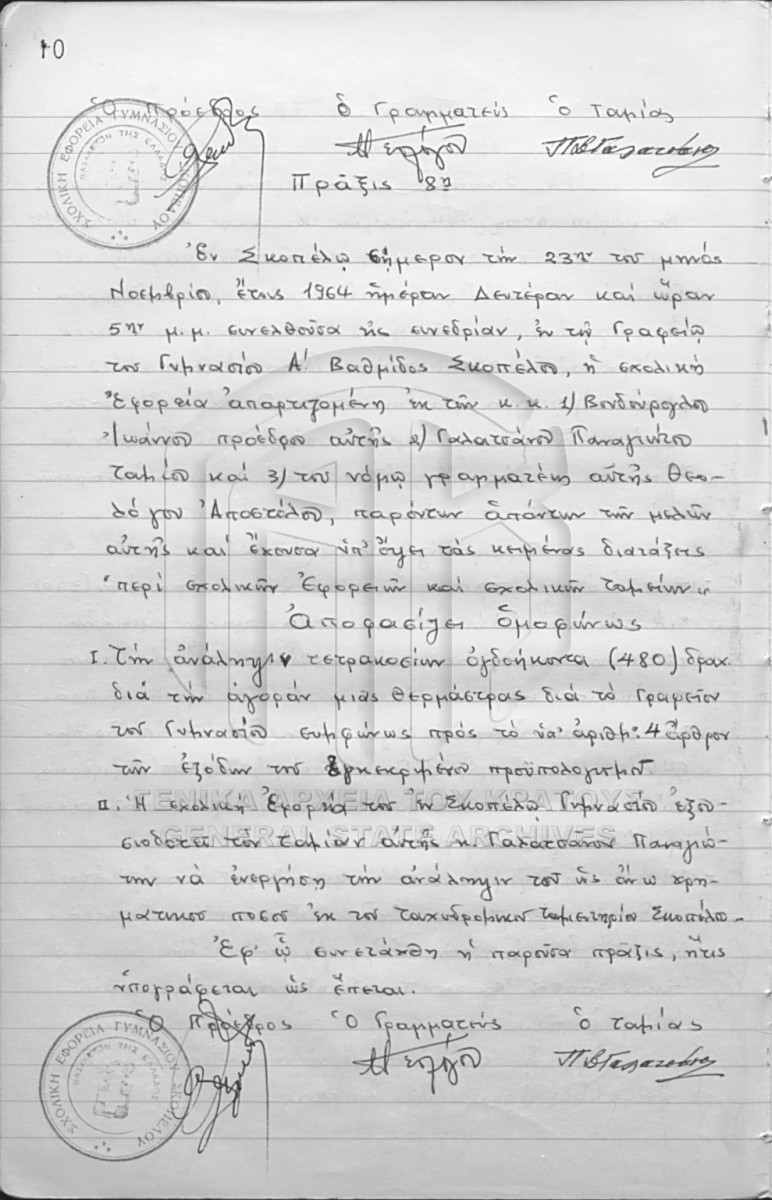 10
Ὁ Πρόεδρος ὁ Γραμματεύς ὁ Ταμίας
Πρᾶξις 8η
Ἐν Σκοπέλῳ σήμερον τὴν 23ην του μηνός
Νοεμβρίου, ἔτους 1964 ἡμέραν Δευτέραν καί ὥραν
5ην μ.μ. συνελθοῦσα εἰς συνεδρίαν, ἐν τῷ Γραφείῳ
του Γυμνασίου Α! Βαθμίδος Σκοπέλου, ἡ σχολική
Ἐφορεία ἀπαρτιζομένη ἐκ τῶν κ.κ. 1) Βουδούρογλου
Ἰωάννου προέδρου αὐτῆς 2) Γαλατσάνου Παναγιώτου
ταμίου καί 3) του νόμῳ γραμματέως αὐτῆς Θεο-
λόγου Ἀποστόλου, παρόντων ἁπάντων τῶν μελῶν
αὐτῆς καί ἔχουσα ὑπ' ὄψει τὰς κειμένας διατάξεις
"περί σχολικῶν Ἐφορειῶν καί σχολικῶν ταμείων"
Ἀποφασίζει ὁμοφώνως
I. Τὴν ἀνάληψιν τετρακοσίων ὀγδοήκοντα (480) δραχ.
διά τὴν ἀγοράν μιας θερμάστρας διά τό Γραφεῖον
του Γυμνασίου συμφώνως πρός τό ὑπ' ἀριθμ: 4 ἄρθρον
τῶν ἐξόδων του ἐγκεκριμένου προϋπολογισμοῦ.
II. Ἡ σχολική Ἐφορεία του ἐν Σκοπέλῳ Γυμνασίου ἐξου-
σιοδοτεῖ τὸν ταμίαν αὐτῆς κ. Γαλατσάνον Παναγιώ-
την νά ἐνεργήσῃ τὴν ἀνάληψιν τοῦ ὡς ἄνω χρη-
ματικου ποσου ἐκ του ταχυδρομικου ταμιευτηρίου Σκοπέλου.
Ἐφ' ᾧ συνετάχθη ἡ παροῦσα πρᾶξις, ἥτις
ὑπογράφεται ὡς ἕπεται.
Ὁ Πρόεδρος Ὁ Γραμματεύς ὁ ταμίας
ΣΧΟΛΙΚΗ ΕΦΟΡΕΙΑ ΓΥΜΝΑΣΙΟΥ ΣΚΟΠΕΛΟΥ
ΒΑΣΙΛΕΙΟΝ ΤΗΣ ΕΛΛΑΔΟΣ
ΣΧΟΛΙΚΗ ΕΦΟΡΕΙΑ ΓΥΜΝΑΣΙΟΥ ΣΚΟΠΕΛΟΥ
ΒΑΣΙΛΕΙΟΝ ΤΗΣ ΕΛΛΑΔΟΣ
ΓΕΝΙΚΑ ΑΡΧΕΙΑ ΤΟΥ ΚΡΑΤΟΥΣ
GENERAL STATE ARCHIVES